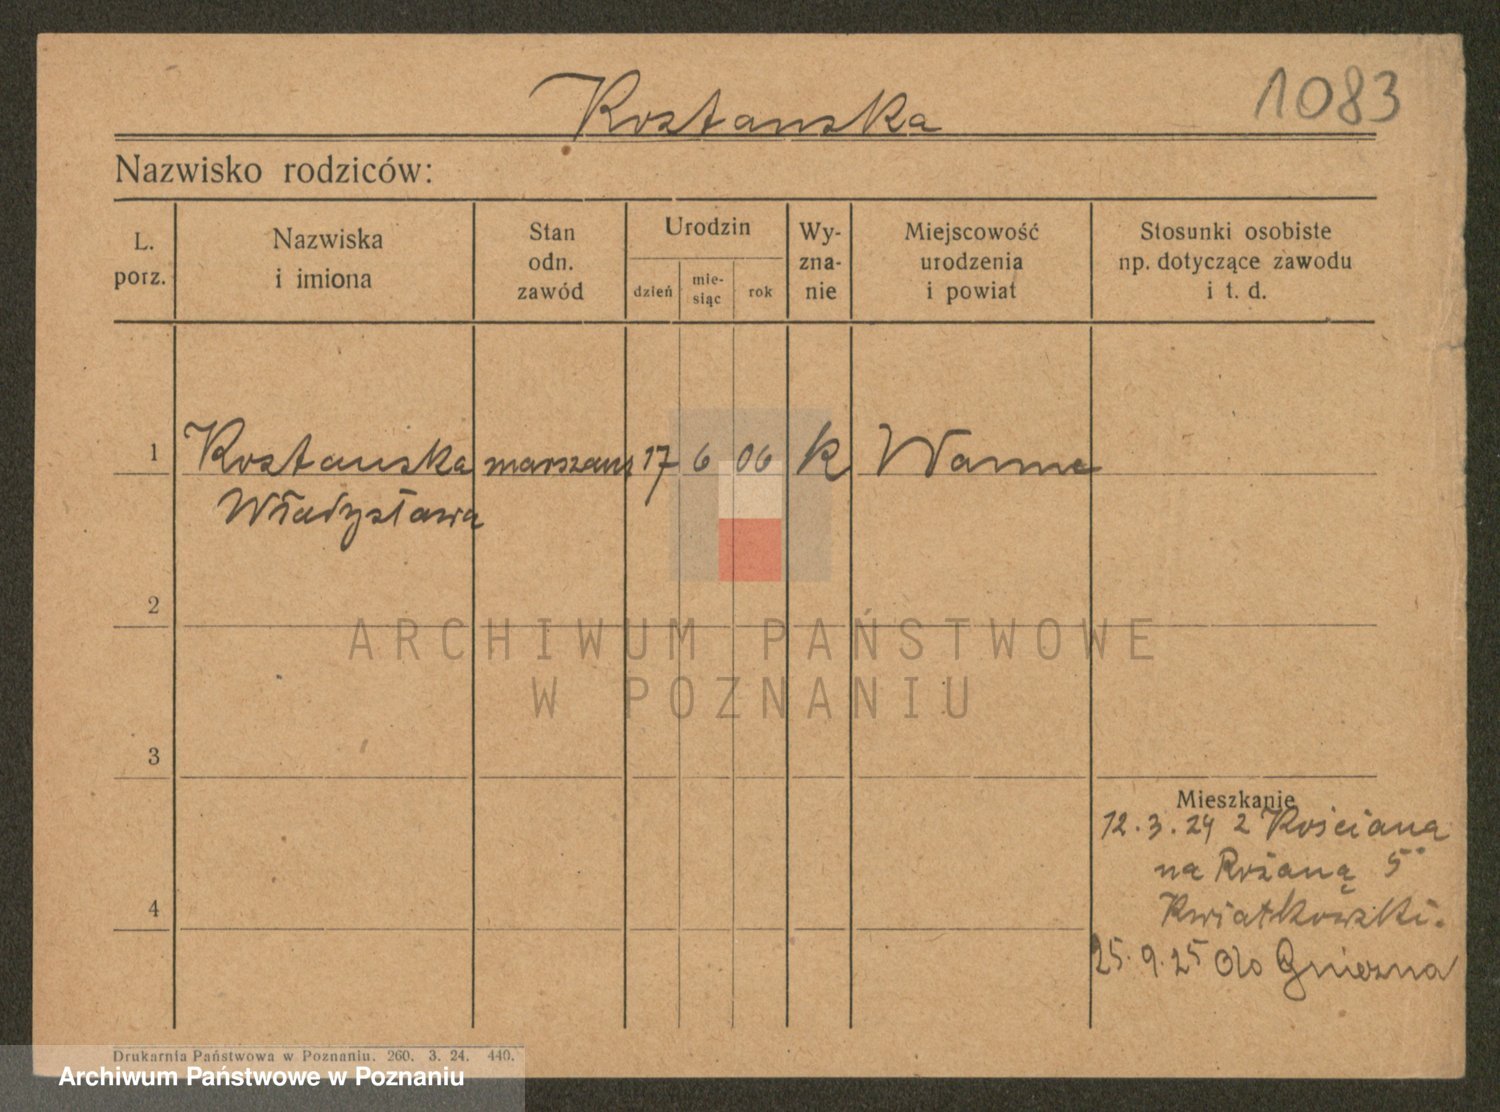 Kostanska
1083
Nazwisko rodziców:
L. porz.
Nazwiska i imiona
Stan odn. zawód
Urodzin
dzień
mie-siąc
rok
Wy-zna-nie
Miejscowość urodzenia i powiat
Stosunki osobiste np. dotyczące zawodu i t. d.
1 Kostanska 17 6 06 k
Władysława
2
ARCHIWUM PAŃSTWOWE
W POZNANIU
3
Mieszkanie
12.3.24 z Kościana
na Rożaną 5
Kwiatkowski.
4
25.9.25 do Gniezna
Drukarnia Państwowa w Poznaniu. 260. 3. 24. 440.
Archiwum Państwowe w Poznaniu